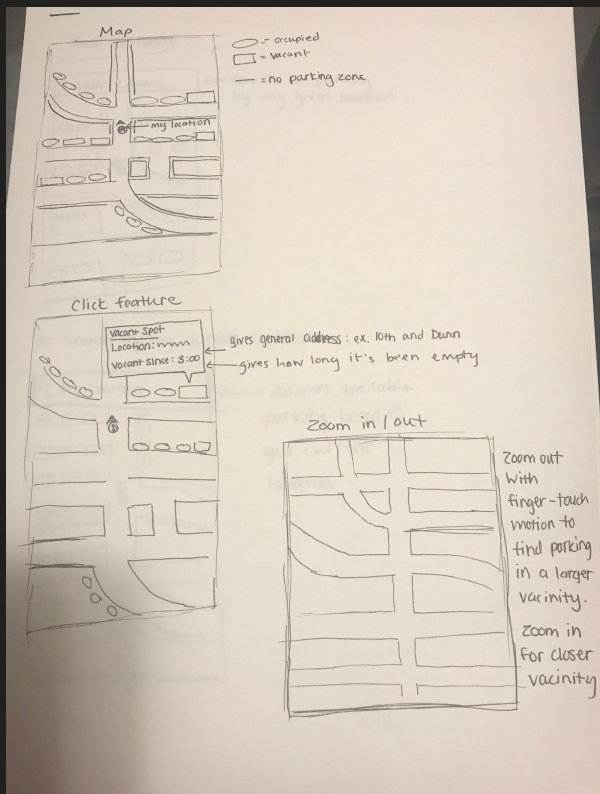 Map
= occupied
= vacant
= no parking zone
my location
Click feature
Vacant Spot
Location:
Vacant since: 3:00
gives general address: ex. 10th and Dunn
gives how long it's been empty
Zoom in / out
Zoom out
with
finger-touch
motion to
find parking
in a larger
vacinity.
Zoom in
for closer
vacinity